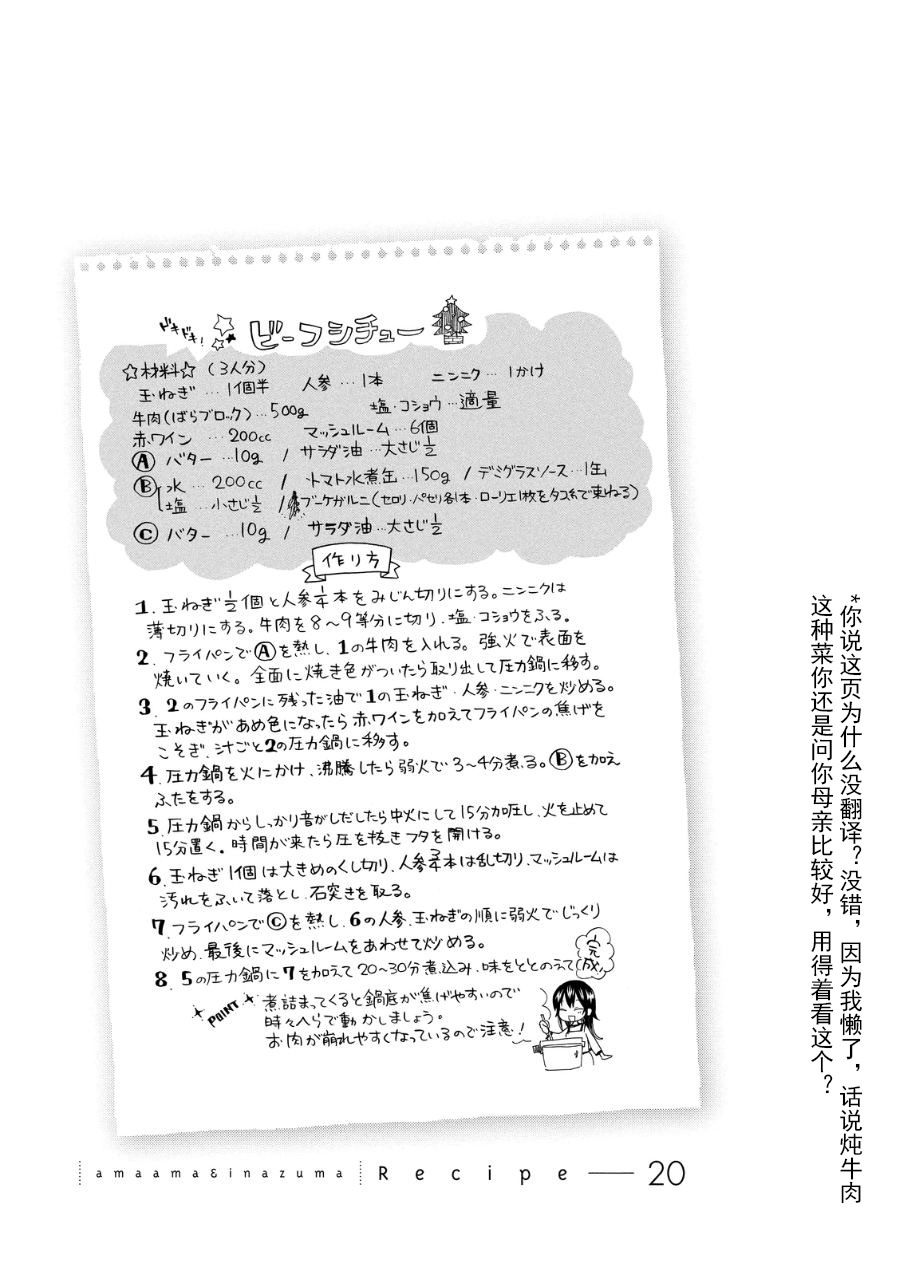 ドキドキ!
ビーフシチュー
☆材料☆(3人分)
玉ねぎ…1個半 人参…1本 ニンニク…1かけ
牛肉(ばらブロック)…500g 塩・コショウ…適量
赤ワイン…200cc マッシュルーム…6個
Ⓐ バター…10g / サラダ油…大さじ½
Ⓑ 水…200cc / トマト水煮缶…150g / デミグラスソース…1缶
塩…小さじ½ / ブーケガルニ(セロリ・パセリ各1本・ローリエ1枚をタコ糸で束ねる)
Ⓒ バター…10g / サラダ油…大さじ½
作り方
1. 玉ねぎ½個と人参¼本をみじん切りにする。ニンニクは
薄切りにする。牛肉を8〜9等分に切り、塩・コショウをふる。
2. フライパンでⒶを熱し、1の牛肉を入れる。強火で表面を
焼いていく。全面に焼き色がついたら取り出して圧力鍋に移す。
3. 2のフライパンに残った油で1の玉ねぎ・人参・ニンニクを炒める。
玉ねぎがあめ色になったら赤ワインを加えてフライパンの焦げを
こそぎ、汁ごと2の圧力鍋に移す。
4. 圧力鍋を火にかけ、沸騰したら弱火で3〜4分煮る。Ⓑを加え
ふたをする。
5. 圧力鍋からしっかり音がしだしたら中火にして15分加圧し、火を止めて
15分置く。時間が来たら圧を抜きフタを開ける。
6. 玉ねぎ1個は大きめのくし切り、人参¾本は乱切り、マッシュルームは
汚れをふいて落とし、石突きを取る。
7. フライパンでⒸを熱し、6の人参、玉ねぎの順に弱火でじっくり
炒め、最後にマッシュルームをあわせて炒める。
8. 5の圧力鍋に7を加えて20〜30分煮込み、味をととのえて
完成
POINT
煮詰まってくると鍋底が焦げやすいので
時々へらで動かしましょう。
お肉が崩れやすくなっているので注意!
*你说这页为什么没翻译?没错,因为我懒了,话说炖牛肉
这种菜你还是问你母亲比较好,用得着看这个?
amaama&inazuma Recipe 20